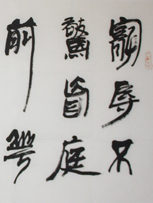 寵辱不
驚看庭
前華